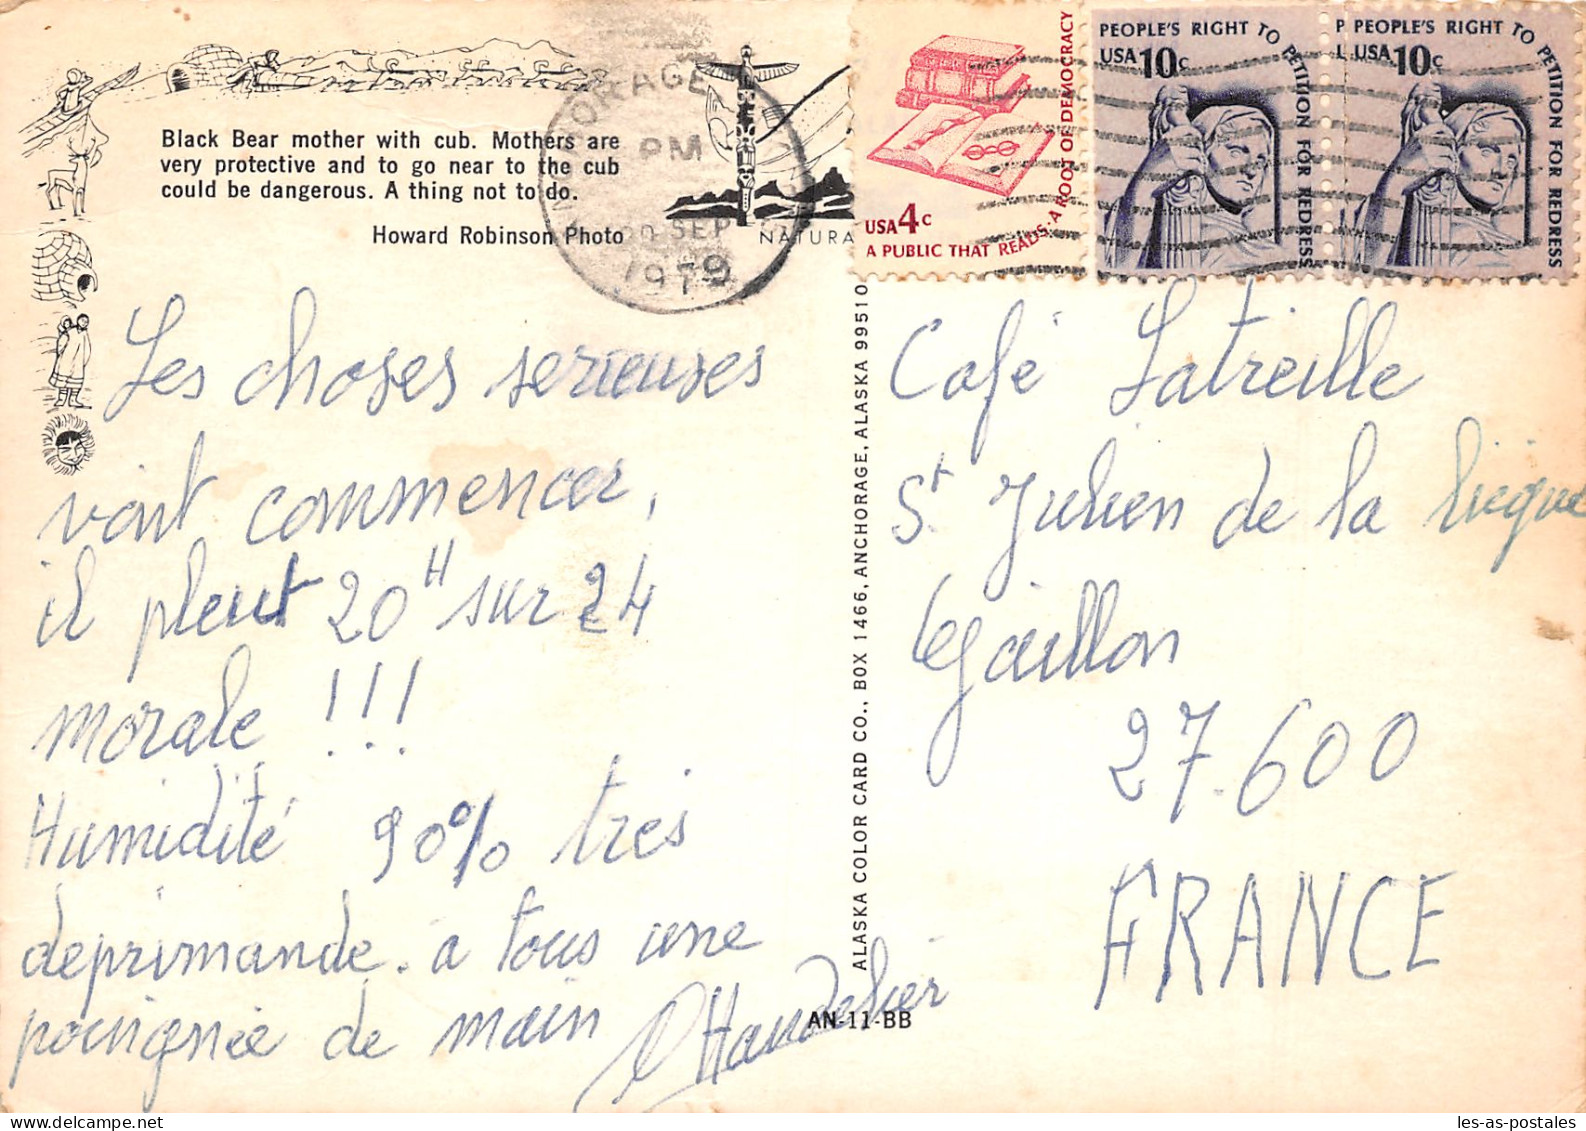 Black Bear mother with cub. Mothers are
very protective and to go near to the cub
could be dangerous. A thing not to do.
Howard Robinson Photo
NATURA
ORAGE
PM
SEP
1979
USA 4c
A PUBLIC THAT READS: A ROOT OF DEMOCRACY
PEOPLE'S RIGHT TO PETITION FOR REDRESS
USA 10c
P PEOPLE'S RIGHT TO PETITION FOR REDRESS
USA 10c
Les choses serieuses
vont commencer,
il pleut 20H sur 24
morale !!!
Humidité 90% tres
deprimande. a tous une
poingnée de main
ALASKA COLOR CARD CO., BOX 1466, ANCHORAGE, ALASKA 99510
AN-11-BB
Café Latreille
St Julien de la liègue
Gaillon
27.600
FRANCE
les-as-postales